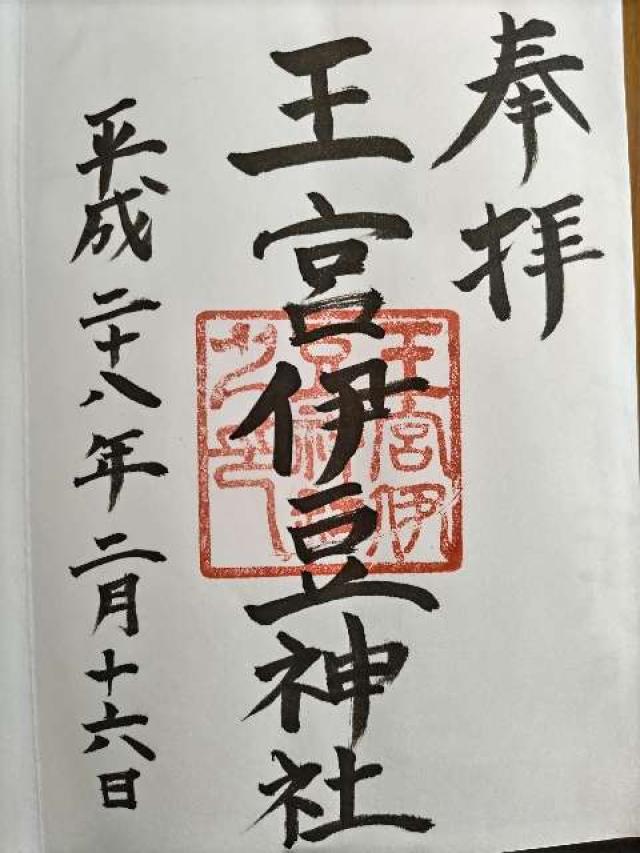 奉拝
王宮伊豆神社
王宮伊
豆神社
之印
平成二十八年二月十六日